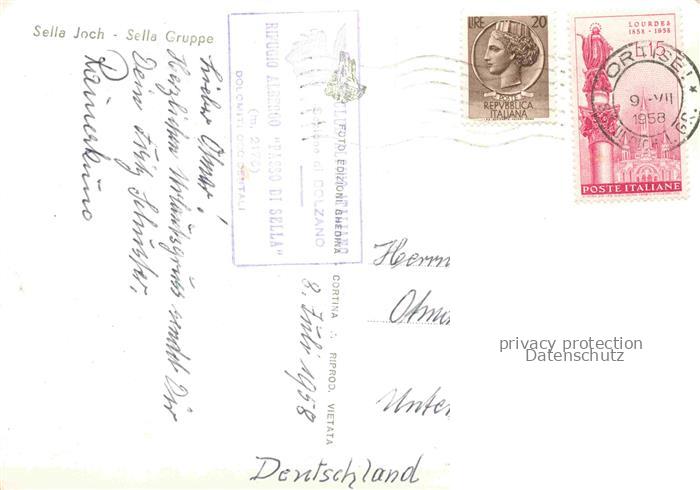 Sella Joch - Sella Gruppe
Lieber Otmar!
Herzlichen Urlaubsgruss sendet Dir
Dein Fritz
CLUB ALPINO ITALIANO
Sezione di BOLZANO
RIFUGIO ALBERGO "PASSO DI SELLA"
(m. 2176)
DOLOMITI OCCIDENTALI
FOTO EDIZIONI GHEDINA - CORTINA A. RIPROD. VIETATA
8. Juli 1958
LIRE 20
POSTE
REPVBBLICA
ITALIANA
LOURDES
1858 - 1958
L.15
POSTE ITALIANE
ORTISEI
9 -VII
1958
Herrn
Otmar
Unter
Deutschland
privacy protection
Datenschutz